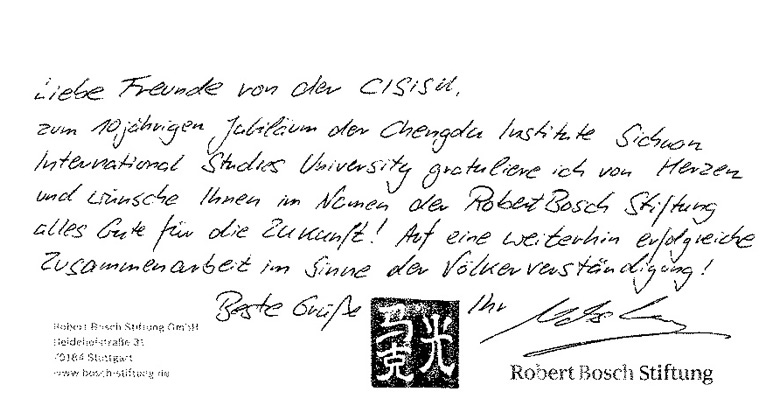 Liebe Freunde von der CISISU,
zum 10jährigen Jubiläum der Chengdu Institute Sichuan
International Studies University gratuliere ich von Herzen
und wünsche Ihnen im Namen der Robert Bosch Stiftung
alles Gute für die Zukunft! Auf eine weiterhin erfolgreiche
Zusammenarbeit im Sinne der Völkerverständigung!
Beste Grüße Ihr
Robert Bosch Stiftung GmbH
Heidehofstraße 31
70184 Stuttgart
www.bosch-stiftung.de
光
Robert Bosch Stiftung